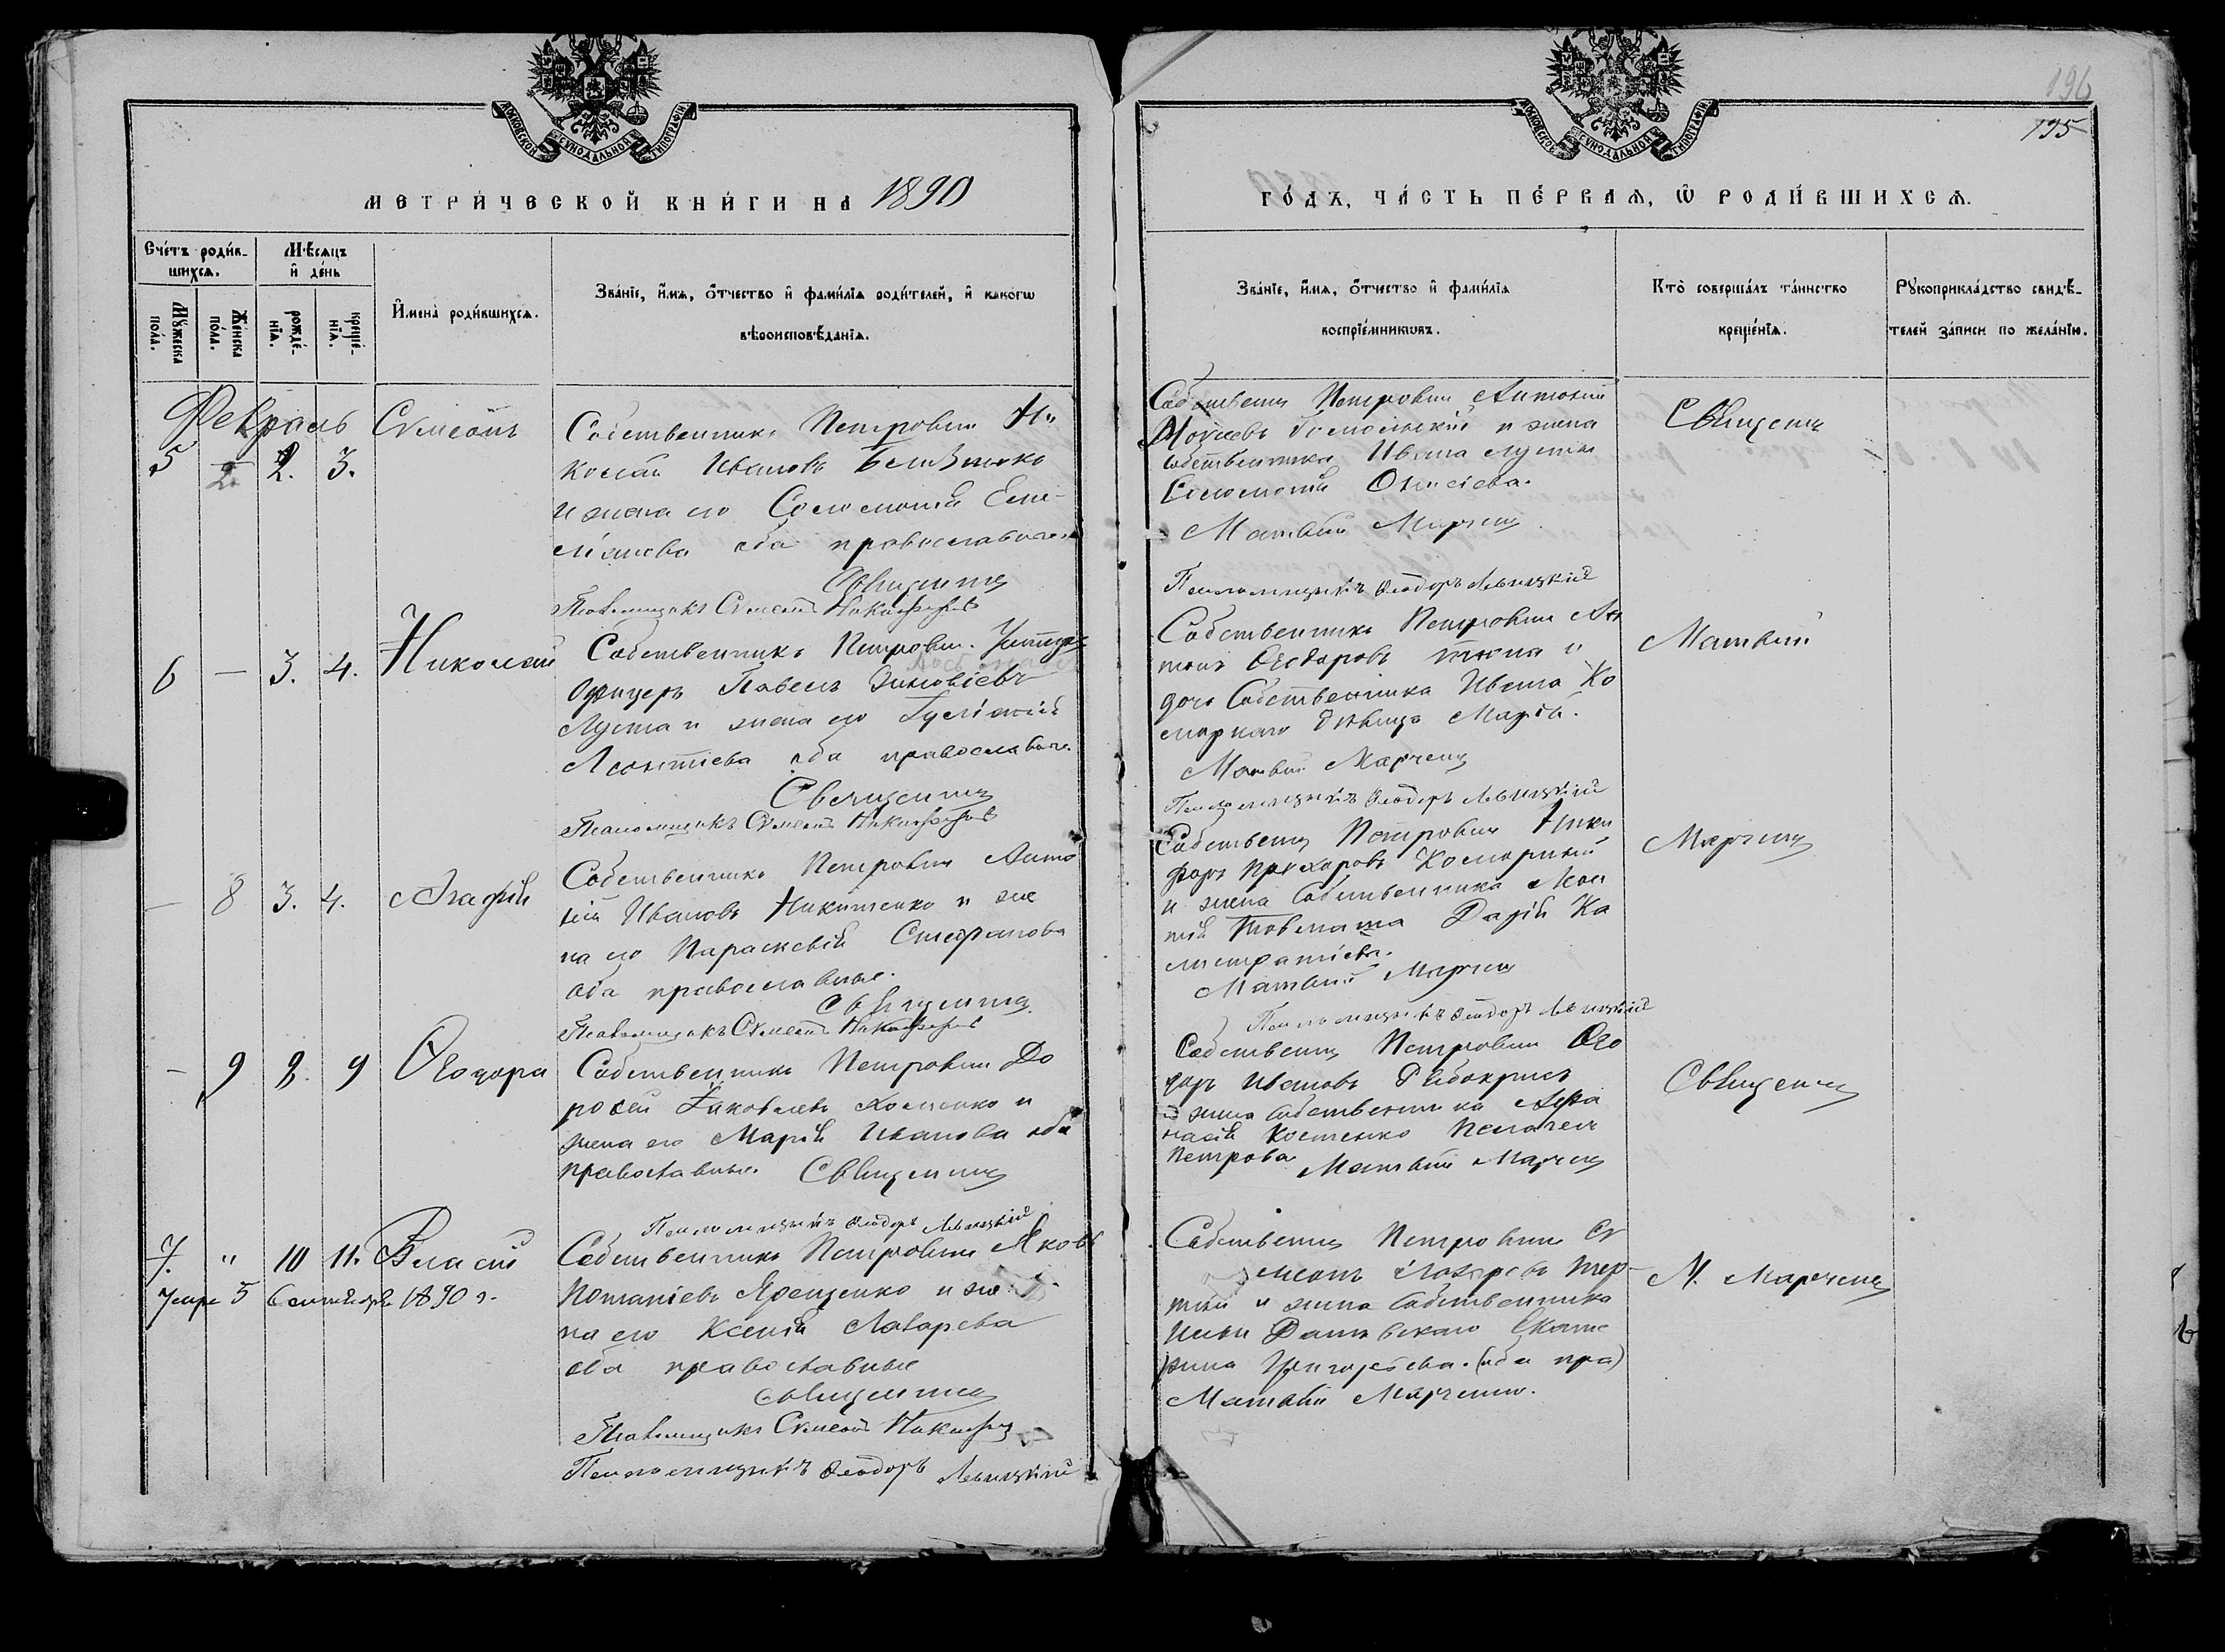 196
195
МОСКОВСКОЙ СУНОДАЛЬНОЙ ТИПОГРАФІИ
МОСКОВСКОЙ СУНОДАЛЬНОЙ ТИПОГРАФІИ
МЕТРИ́ЧЕСКОЙ КНИ́ГИ НА 1890
ГО́ДЪ, ЧА́СТЬ ПЕ́РВАѦ, Ѡ РОДИ́ВШИХСѦ.
Сче́тъ роди́в-
шихсѧ.
Мꙋ́жеска
по́ла.
Же́нска
по́ла.
Мѣ́сѧцъ
и҆ де́нь
рожде́-
нїѧ.
креще́-
нїѧ.
И҆мена̀ роди́вшихсѧ.
Зва́нїе, и҆́мѧ, о҆́тчество и҆ фами́лїѧ роди́телей, и҆ како́гѡ
вѣроисповѣ́данїѧ.
Зва́нїе, и҆́мѧ, о҆́тчество и҆ фами́лїѧ
воспрїе́мникѡвъ.
Кто̀ соверша́лъ та́инство
креще́нїѧ.
Рꙋкоприкла́дство свидѣ́-
телей за́писи по жела́нїю.
Февраль
5 2. 3.
Сѵмеонъ
Собственникъ Петровки Ни
колай Ивановъ
и жена его Соломонія Еме-
ліанова оба православные
Священникъ
Псаломщикъ Сѵмеонъ Никифоровъ
Собственникъ Петровки Антоній
Моѵсеевъ и жена
собственника Ивана Лусты
Соломонія Онисіева.
Матвій Марченко
Псаломщикъ Ѳеодоръ Левицкій
Священникъ
6 — 3. 4. Николай
Собственникъ Петровки Унтеръ
офицеръ Павелъ Зиновіевъ
Луста и жена его Гуліанія
Леонтіева оба православные
Священникъ
Псаломщикъ Сѵмеонъ Никифоровъ
Собственникъ Петровки Ан
тонъ Ѳеодоровъ и
дочь Собственника Ивана Ко
марнаго дѣвица Марія.
Матвій Марченко
Псаломщикъ Ѳеодоръ Левицкій
Матвій
— 8 3. 4. Агафія
Собственникъ Петровки Анто
ній Ивановъ Никитенко и же
на его Параскевія Стефанова
оба православные.
Священникъ
Псаломщикъ Сѵмеонъ Никифоровъ
Собственникъ Петровки Ники
форъ Прохоровъ Комарный
и жена собственника
Дарія Ка
листратіева.
Матвій Марченко
Псаломщикъ Ѳеодоръ Левицкій
Марченко
- 9 8. 9 Ѳеодора
Собственникъ Петровки До
роѳей Іаковлевъ и
жена его Марія Иванова оба
православные. Священникъ
Псаломщикъ Ѳеодоръ Левицкій
Собственникъ Петровки Ѳео
доръ Ивановъ
и жена собственника Афа
насія Костенко Пелагея
Петрова Матвій Марченко
Священникъ
7. " 10 11. Власій
Умре 5 Сентября 1890 г.
Собственникъ Петровки Яковъ
Потапіевъ Ярещенко и же
на его Ксенія Лазарева
оба православные
Священникъ
Псаломщикъ Сѵмеонъ Никифоровъ
Псаломщикъ Ѳеодоръ Левицкій
Собственникъ Петровки Сѵ
меонъ Лазаревъ
и жена Собственника
Екате
рина Григорьева. (оба пра)
Матвій Марченко.
М. Марченко